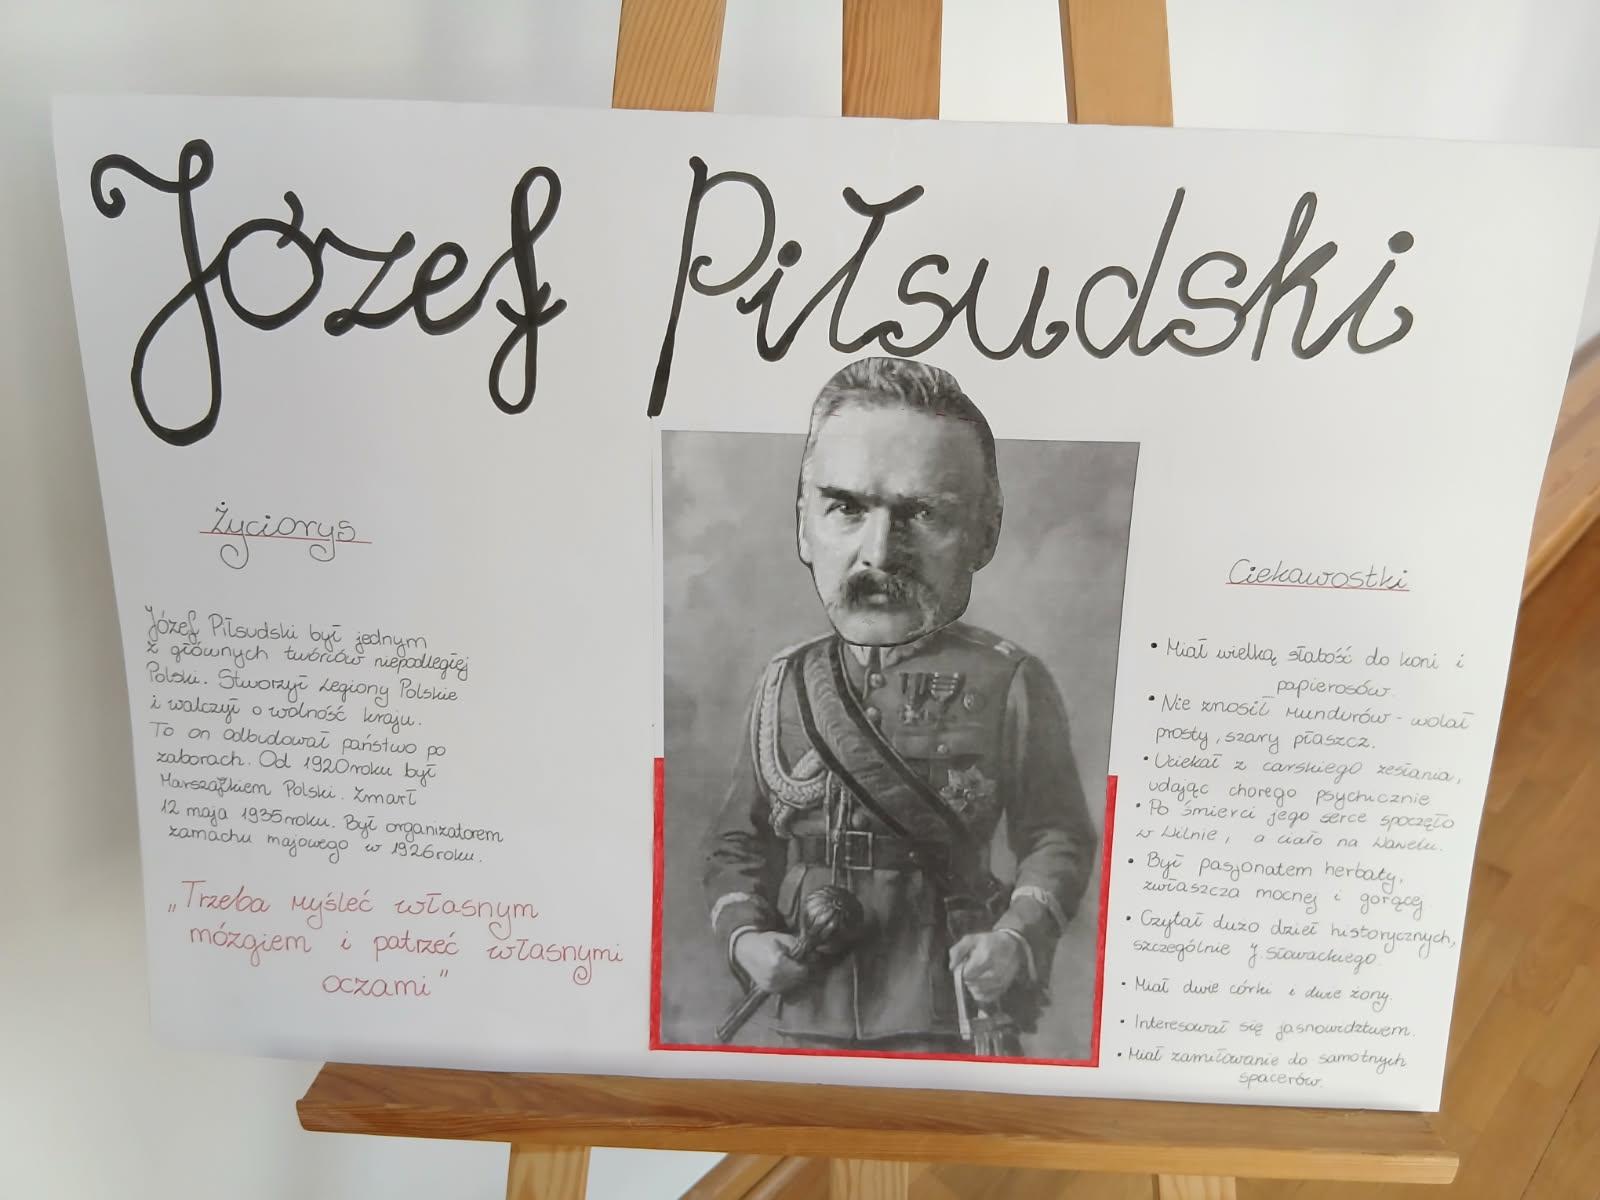 Józef Piłsudski
Życiorys
Józef Piłsudski był jednym
z głównych twórców niepodległej
Polski. Stworzył Legiony Polskie
i walczył o wolność kraju.
To on odbudował państwo po
zaborach. Od 1920 roku był
Marszałkiem Polski. Zmarł
12 maja 1935 roku. Był organizatorem
zamachu majowego w 1926 roku.
„Trzeba myśleć własnym
mózgiem i patrzeć własnymi
oczami"
Ciekawostki
• Miał wielką słabość do koni i
papierosów.
• Nie znosił mundurów - wolał
prosty, szary płaszcz.
• Uciekał z carskiego zesłania,
udając chorego psychicznie
• Po śmierci jego serce spoczęło
w Wilnie, a ciało na Wawelu.
• Był pasjonatem herbaty,
zwłaszcza mocnej i gorącej.
• Czytał dużo dzieł historycznych,
szczególnie J. Słowackiego.
• Miał dwie córki i dwie żony.
• Interesował się jasnowidztwem.
• Miał zamiłowanie do samotnych
spacerów.